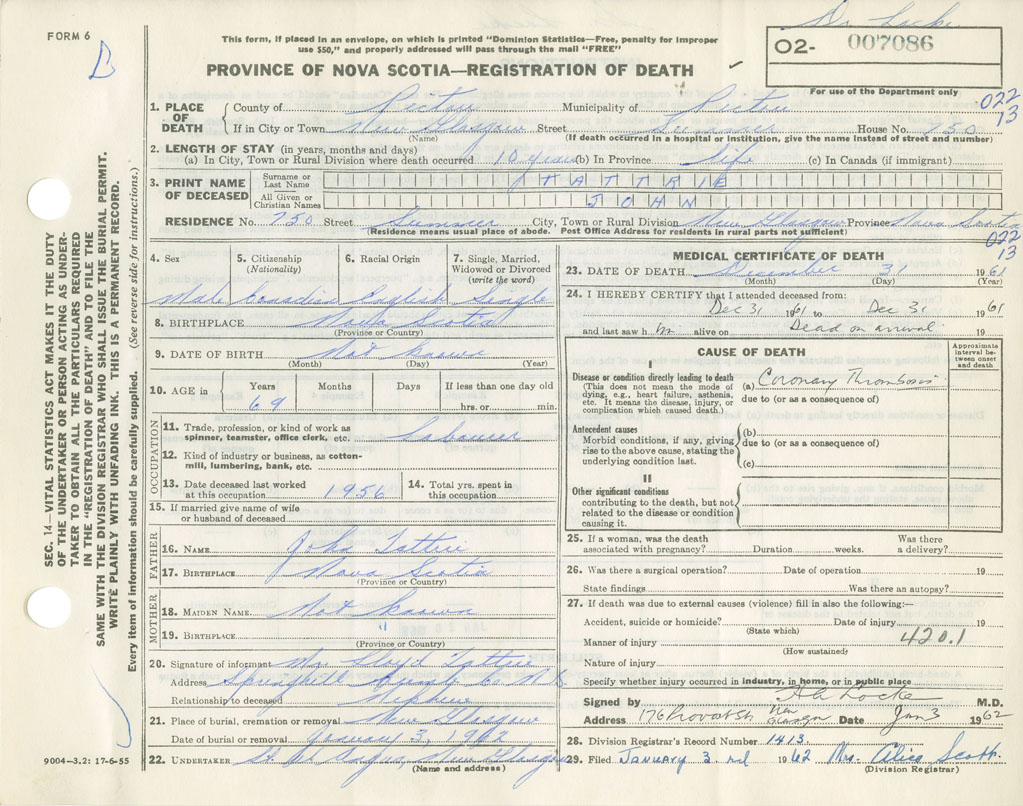 FORM 6
This form, if placed in an envelope, on which is printed "Dominion Statistics—Free, penalty for improper
use $50," and properly addressed will pass through the mail "FREE"
Dr. Locke
O2- 007086
For use of the Department only
PROVINCE OF NOVA SCOTIA—REGISTRATION OF DEATH
022
13
1. PLACE OF DEATH
County of Pictou Municipality of Pictou
If in City or Town New Glasgow Street Summer House No. 750
(Name) (If death occurred in a hospital or institution, give the name instead of street and number)
2. LENGTH OF STAY (in years, months and days)
(a) In City, Town or Rural Division where death occurred 10 years (b) In Province life (c) In Canada (if immigrant)
3. PRINT NAME OF DECEASED
Surname or Last Name TATTRIE
All Given or Christian Names JOHN
RESIDENCE No. 750 Street Summer City, Town or Rural Division New Glasgow Province Nova Scotia
(Residence means usual place of abode. Post Office Address for residents in rural parts not sufficient)
022
13
4. Sex Male
5. Citizenship (Nationality) Canadian
6. Racial Origin English
7. Single, Married, Widowed or Divorced (write the word) Single
8. BIRTHPLACE Nova Scotia
(Province or Country)
9. DATE OF BIRTH Not known
(Month) (Day) (Year)
10. AGE in Years Months Days If less than one day old
69 hrs. or min.
OCCUPATION
11. Trade, profession, or kind of work as
spinner, teamster, office clerk, etc. Labourer
12. Kind of industry or business, as cotton-
mill, lumbering, bank, etc.
13. Date deceased last worked
at this occupation 1956
14. Total yrs. spent in
this occupation
15. If married give name of wife
or husband of deceased
FATHER
16. NAME John Tattrie
17. BIRTHPLACE Nova Scotia
(Province or Country)
MOTHER
18. MAIDEN NAME Not known
19. BIRTHPLACE "
(Province or Country)
20. Signature of informant Mr. Lloyd Tattrie
Address Springhill Co N.S.
Relationship to deceased Nephew
21. Place of burial, cremation or removal New Glasgow
Date of burial or removal January 3, 1962
22. UNDERTAKER New Glasgow
(Name and address)
MEDICAL CERTIFICATE OF DEATH
23. DATE OF DEATH December 31 1961
(Month) (Day) (Year)
24. I HEREBY CERTIFY that I attended deceased from:
Dec 31 1961 to Dec 31 1961
and last saw him alive on Dead on arrival 19
CAUSE OF DEATH
Approximate interval between onset and death
I
Disease or condition directly leading to death
(This does not mean the mode of
dying, e.g., heart failure, asthenia,
etc. It means the disease, injury, or
complication which caused death.)
(a) Coronary Thrombosis
due to (or as a consequence of)
Antecedent causes
Morbid conditions, if any, giving
rise to the above cause, stating the
underlying condition last.
(b)
due to (or as a consequence of)
(c)
II
Other significant conditions
contributing to the death, but not
related to the disease or condition
causing it.
25. If a woman, was the death
associated with pregnancy? Duration weeks. Was there a delivery?
26. Was there a surgical operation? Date of operation 19
State findings Was there an autopsy?
27. If death was due to external causes (violence) fill in also the following:—
Accident, suicide or homicide? Date of injury 19
(State which)
420.1
Manner of injury
(How sustained)
Nature of injury
Specify whether injury occurred in industry, in home, or in public place
Signed by H A Locke M.D.
Address 176 Provost St New Glasgow Date Jan 3 1962
28. Division Registrar's Record Number 1413
29. Filed January 3rd 1962 Mrs. Alice Scott
(Division Registrar)
SEC. 14—VITAL STATISTICS ACT MAKES IT THE DUTY
OF THE UNDERTAKER OR PERSON ACTING AS UNDER-
TAKER TO OBTAIN ALL THE PARTICULARS REQUIRED
IN THE "REGISTRATION OF DEATH" AND TO FILE THE
SAME WITH THE DIVISION REGISTRAR WHO SHALL ISSUE THE BURIAL PERMIT.
WRITE PLAINLY WITH UNFADING INK. THIS IS A PERMANENT RECORD.
Every item of information should be carefully supplied. (See reverse side for instructions.)
9004-3.2: 17-6-55